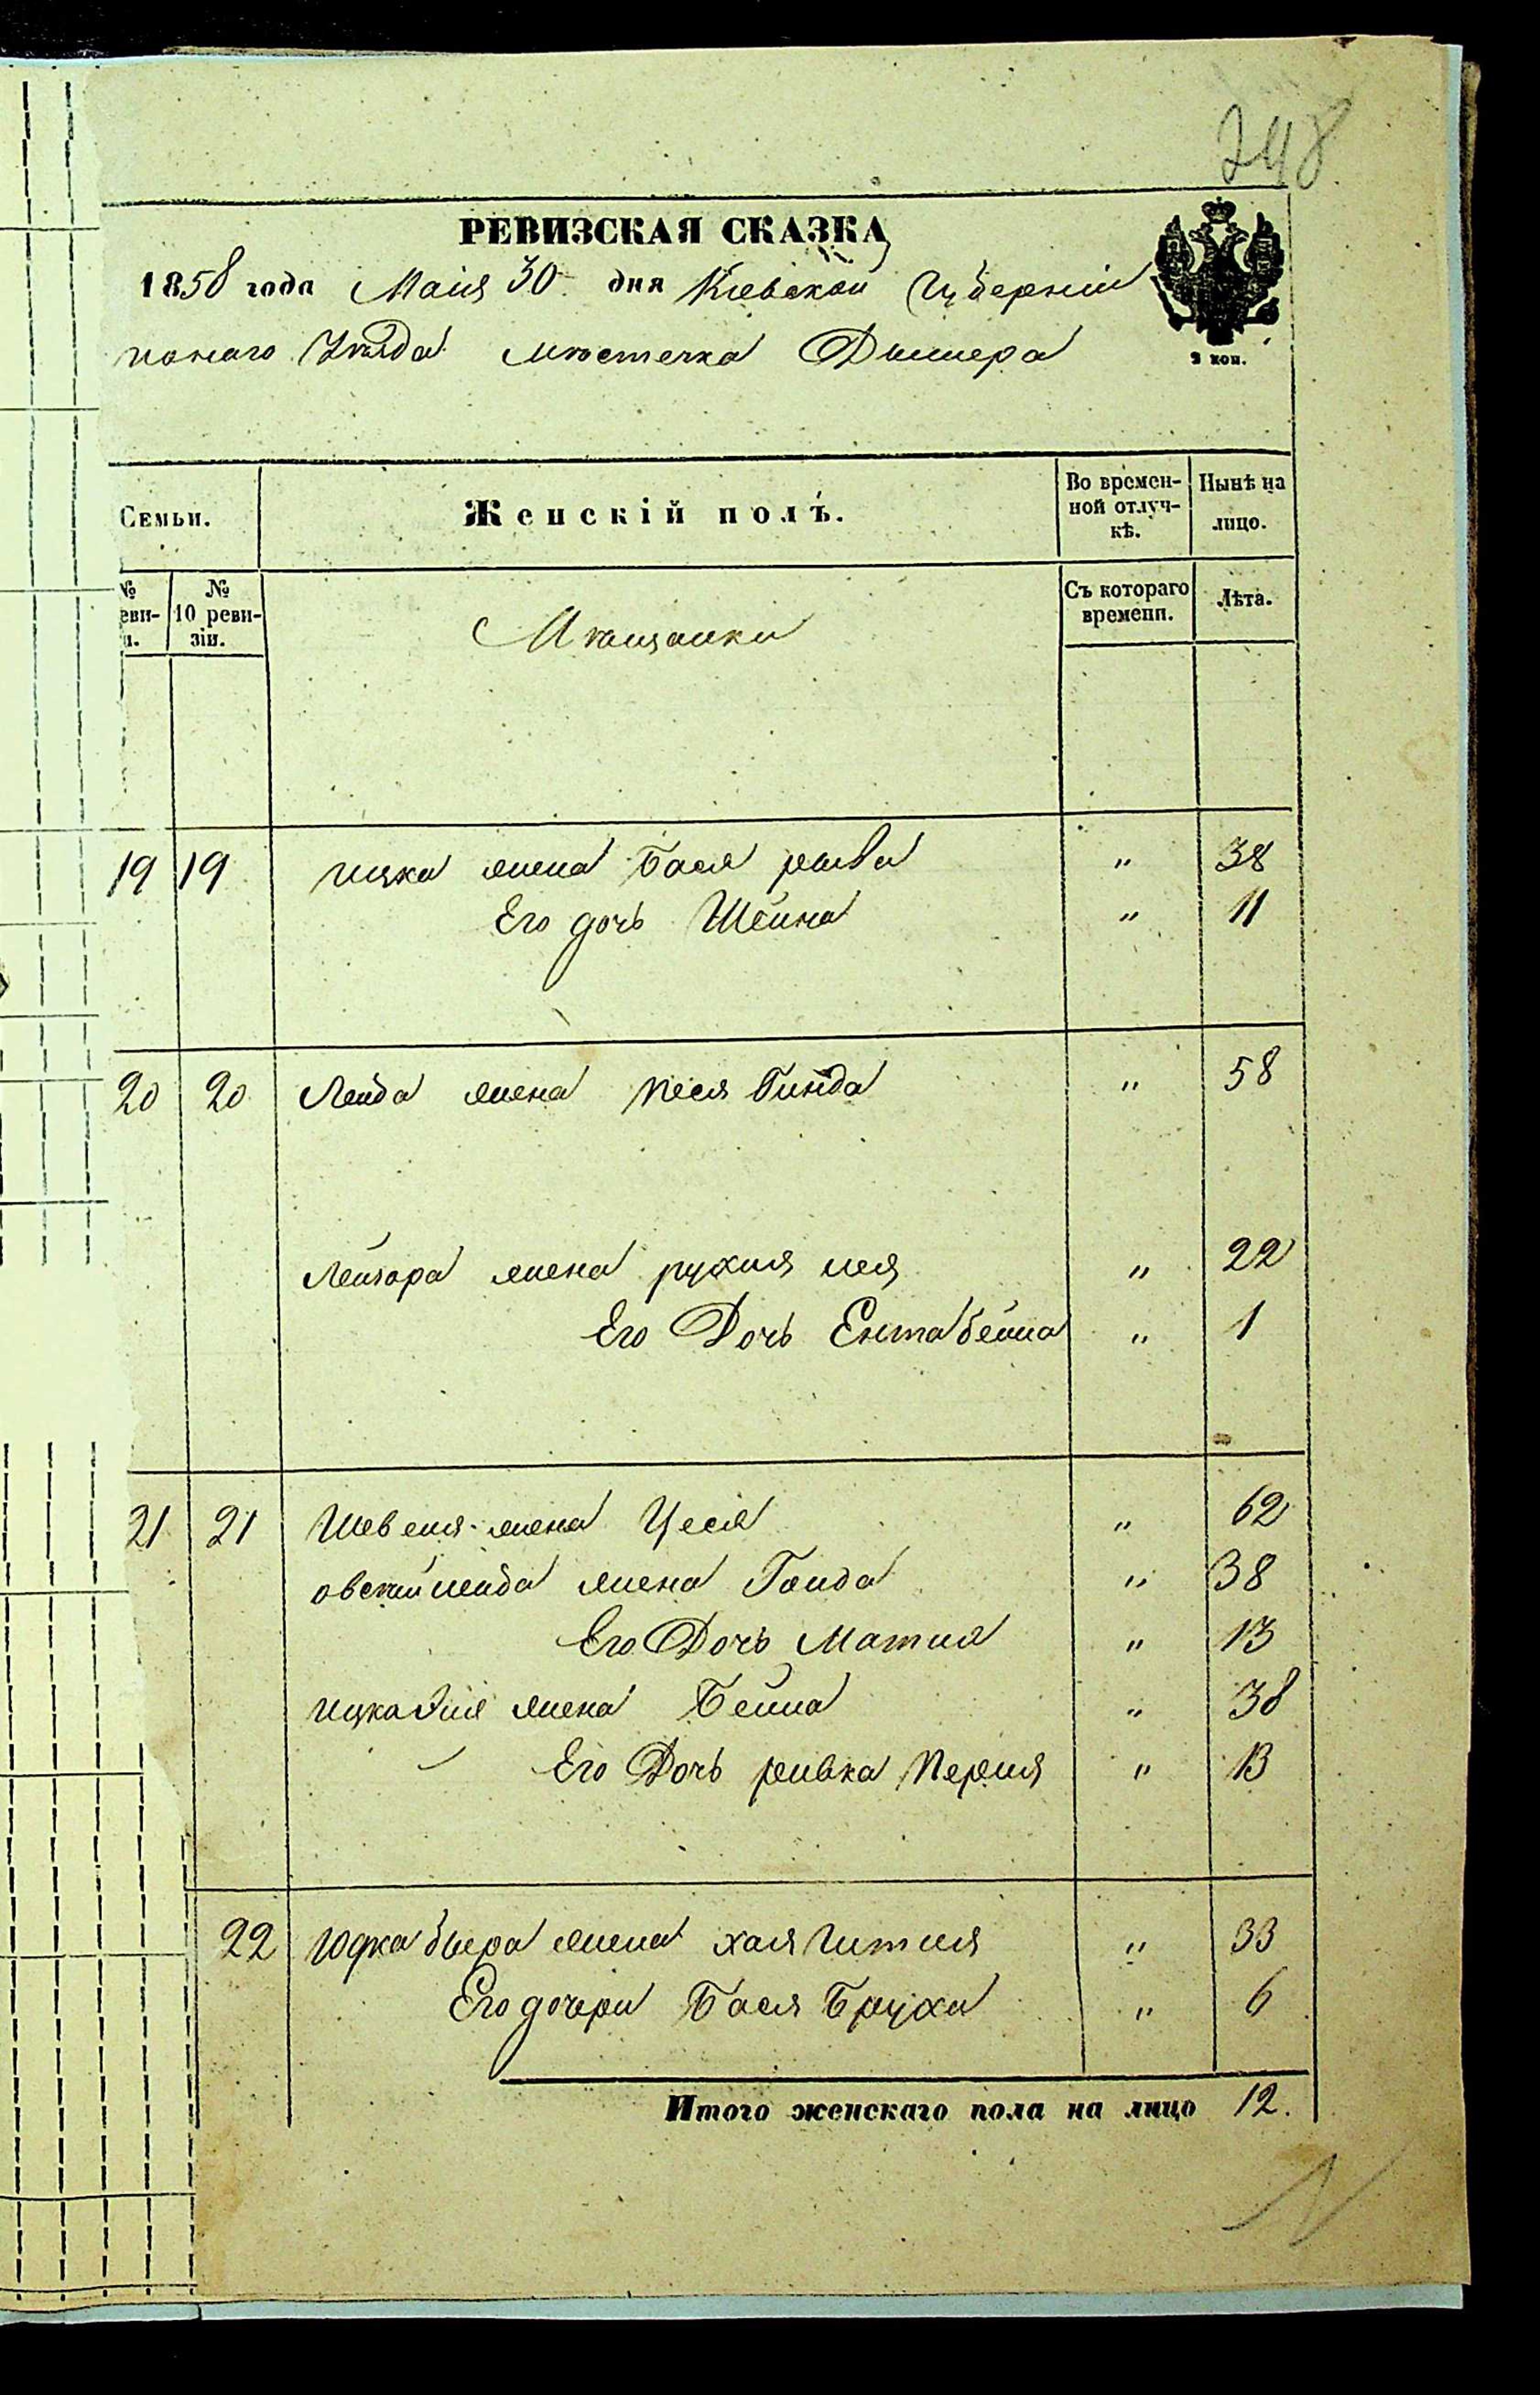 248
РЕВИЗСКАЯ СКАЗКА
1858 года Маія 30 дня Кіевской Губерніи
Уѣзда мѣстечка Дымера
2 коп.
Семьи.
Женскій полъ.
Во времен-
ной отлуч-
кѣ.
Нынѣ на
лицо.
№
еви-
і.
№
10 реви-
зіи.
Мѣщанки
Съ котораго
времени.
Лѣта.
19 19 Ицка жена Бася рыва " 38
Его дочь Шейна " 11
20 20 Лейба жена Песя Гинда " 58
Лейзора жена рухля лея " 22
Его Дочь Ента бейла " 1
21 21 жена Цеся " 62
овскій лейба жена Голда " 38
Его Дочь Матля " 13
Ицка жена Бейла " 38
Его Дочь ривка Перля " 13
22 Юдка бера жена хая Гитля " 33
Его дочери Бася Бруха " 6
Итого женскаго пола на лицо 12.